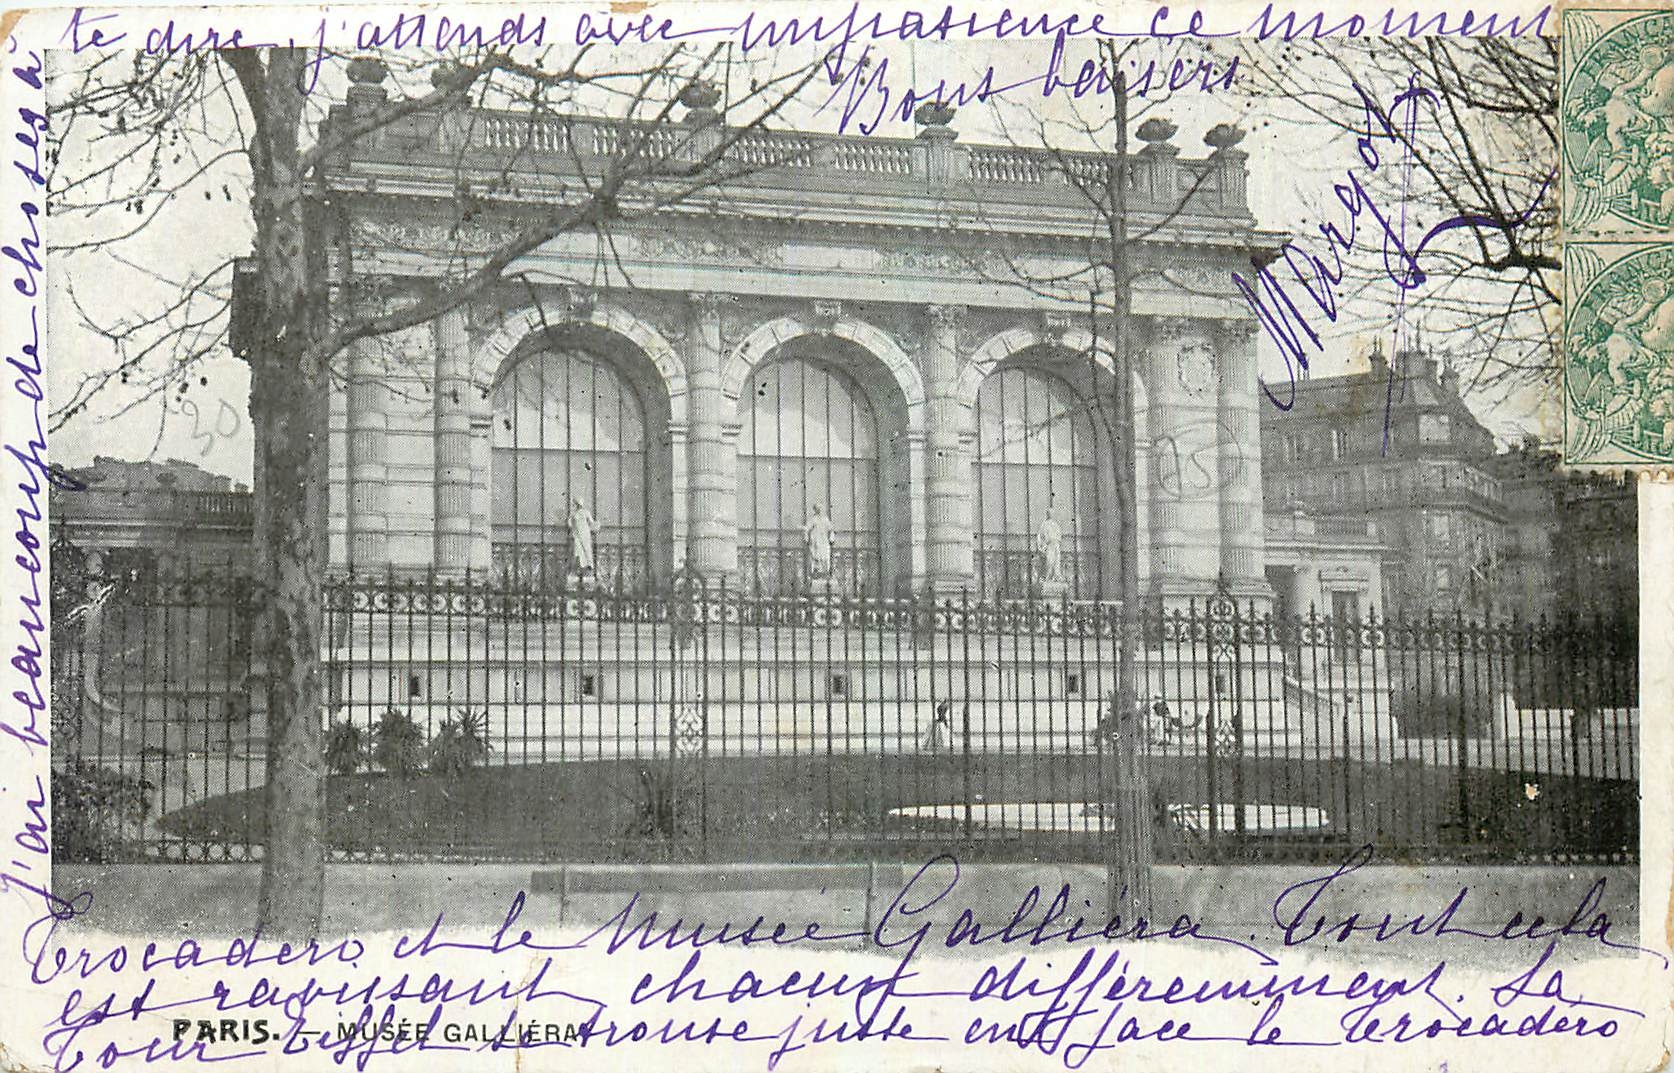 Trocadéro et le Musée Galliéra. Tout cela
est ravissant, chacun différemment. La
Tour Eiffel se trouve juste en face le Trocadéro
PARIS. — MUSÉE GALLIÉRA
J'ai beaucoup de choses à
te dire, j'attends avec impatience ce moment
Bons baisers
Margot
30
15
FRANÇAISE
FRANÇAISE